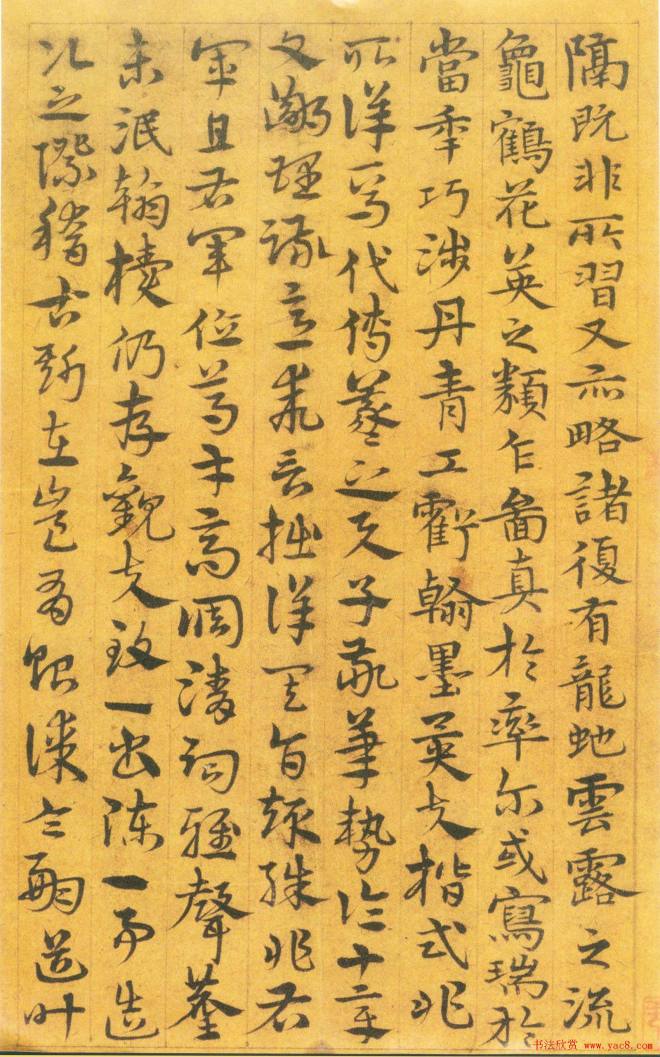 隔既非所習又亦略諸復有龍虵雲露之流
龜鶴花英之類乍圖真於率尔或寫瑞於
當年巧涉丹青工虧翰墨異夫楷式非
所詳焉代傳羲之与子敬筆勢論十章
文鄙理疎意乖言拙詳其旨趣殊非右
軍且右軍位重才高調清詞雅聲塵
未泯翰櫝仍存觀夫致一書陳一事造
次之際稽古斯在豈有貽謀令嗣道叶
书法欣赏 www.yac8.com